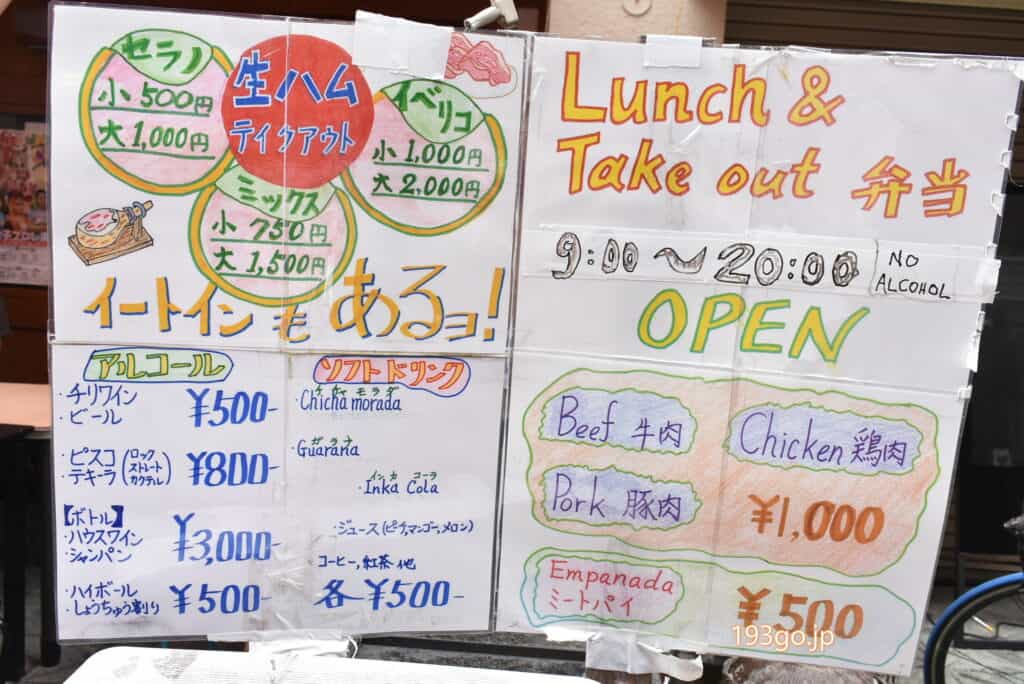 セラノ
小 500円
大 1,000円
生ハム
テイクアウト
イベリコ
小 1,000円
大 2,000円
ミックス
小 750円
大 1,500円
イートインも あるヨ!
アルコール
・チリワイン
・ビール
¥500-
・ピスコ
テキーラ(ロック ストレート カクテル)
¥800-
【ボトル】
・ハウスワイン
・シャンパン
¥3,000-
・ハイボール
・しょうちゅう割り
¥500-
ソフトドリンク
チチャ モラダ
・Chicha morada
ガラナ
・Guarana
インカ コーラ
・Inka Cola
・ジュース(ピーチ,マンゴー,メロン)
コーヒー,紅茶 他
各 ¥500-
Lunch &
Take out 弁当
9:00~20:00
NO
ALCOHOL
OPEN
Beef 牛肉
Chicken 鶏肉
Pork 豚肉
¥1,000
Empanada
ミートパイ
¥500
193go.jp